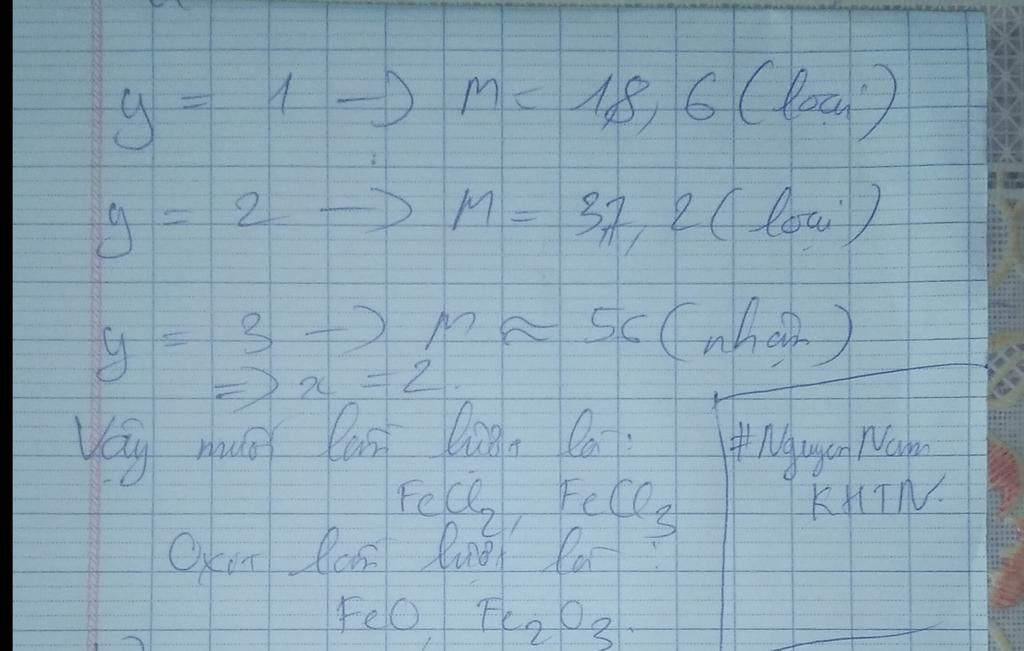 y = 1 → M = 18,6 (loại)
y = 2 → M = 37,2 (loại)
y = 3 → M ≈ 56 (nhận)
=> x = 2.
Vậy muối lần lượt là:
FeCl₂, FeCl₃
Oxit lần lượt là:
FeO, Fe₂O₃.
#Nguyen Nam
KHTN.